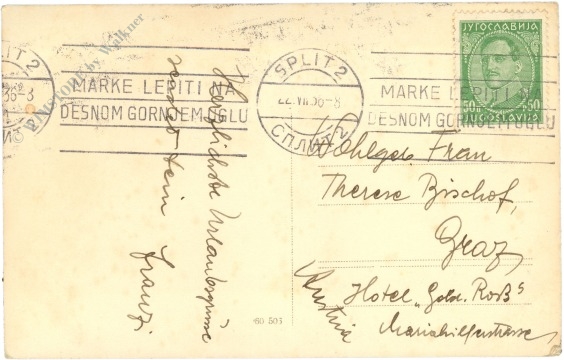 SPLIT 2
MARKE LEPITI NA
DESNOM GORNJEM UGLU
SPLIT 2
22.VII.36-8
СПЛИТ 2
MARKE LEPITI NA
DESNOM GORNJEM UGLU
ЈУГОСЛАВИЈА
50 50
JUGOSLAVIJA
by Walkner
Herzlichste Urlaubsgrüsse
Franzi
Wohlgeb. Frau
Therese Bischof,
Graz,
Hotel "Gold. Roß"
Mariahilferstrasse
Austria
60 503